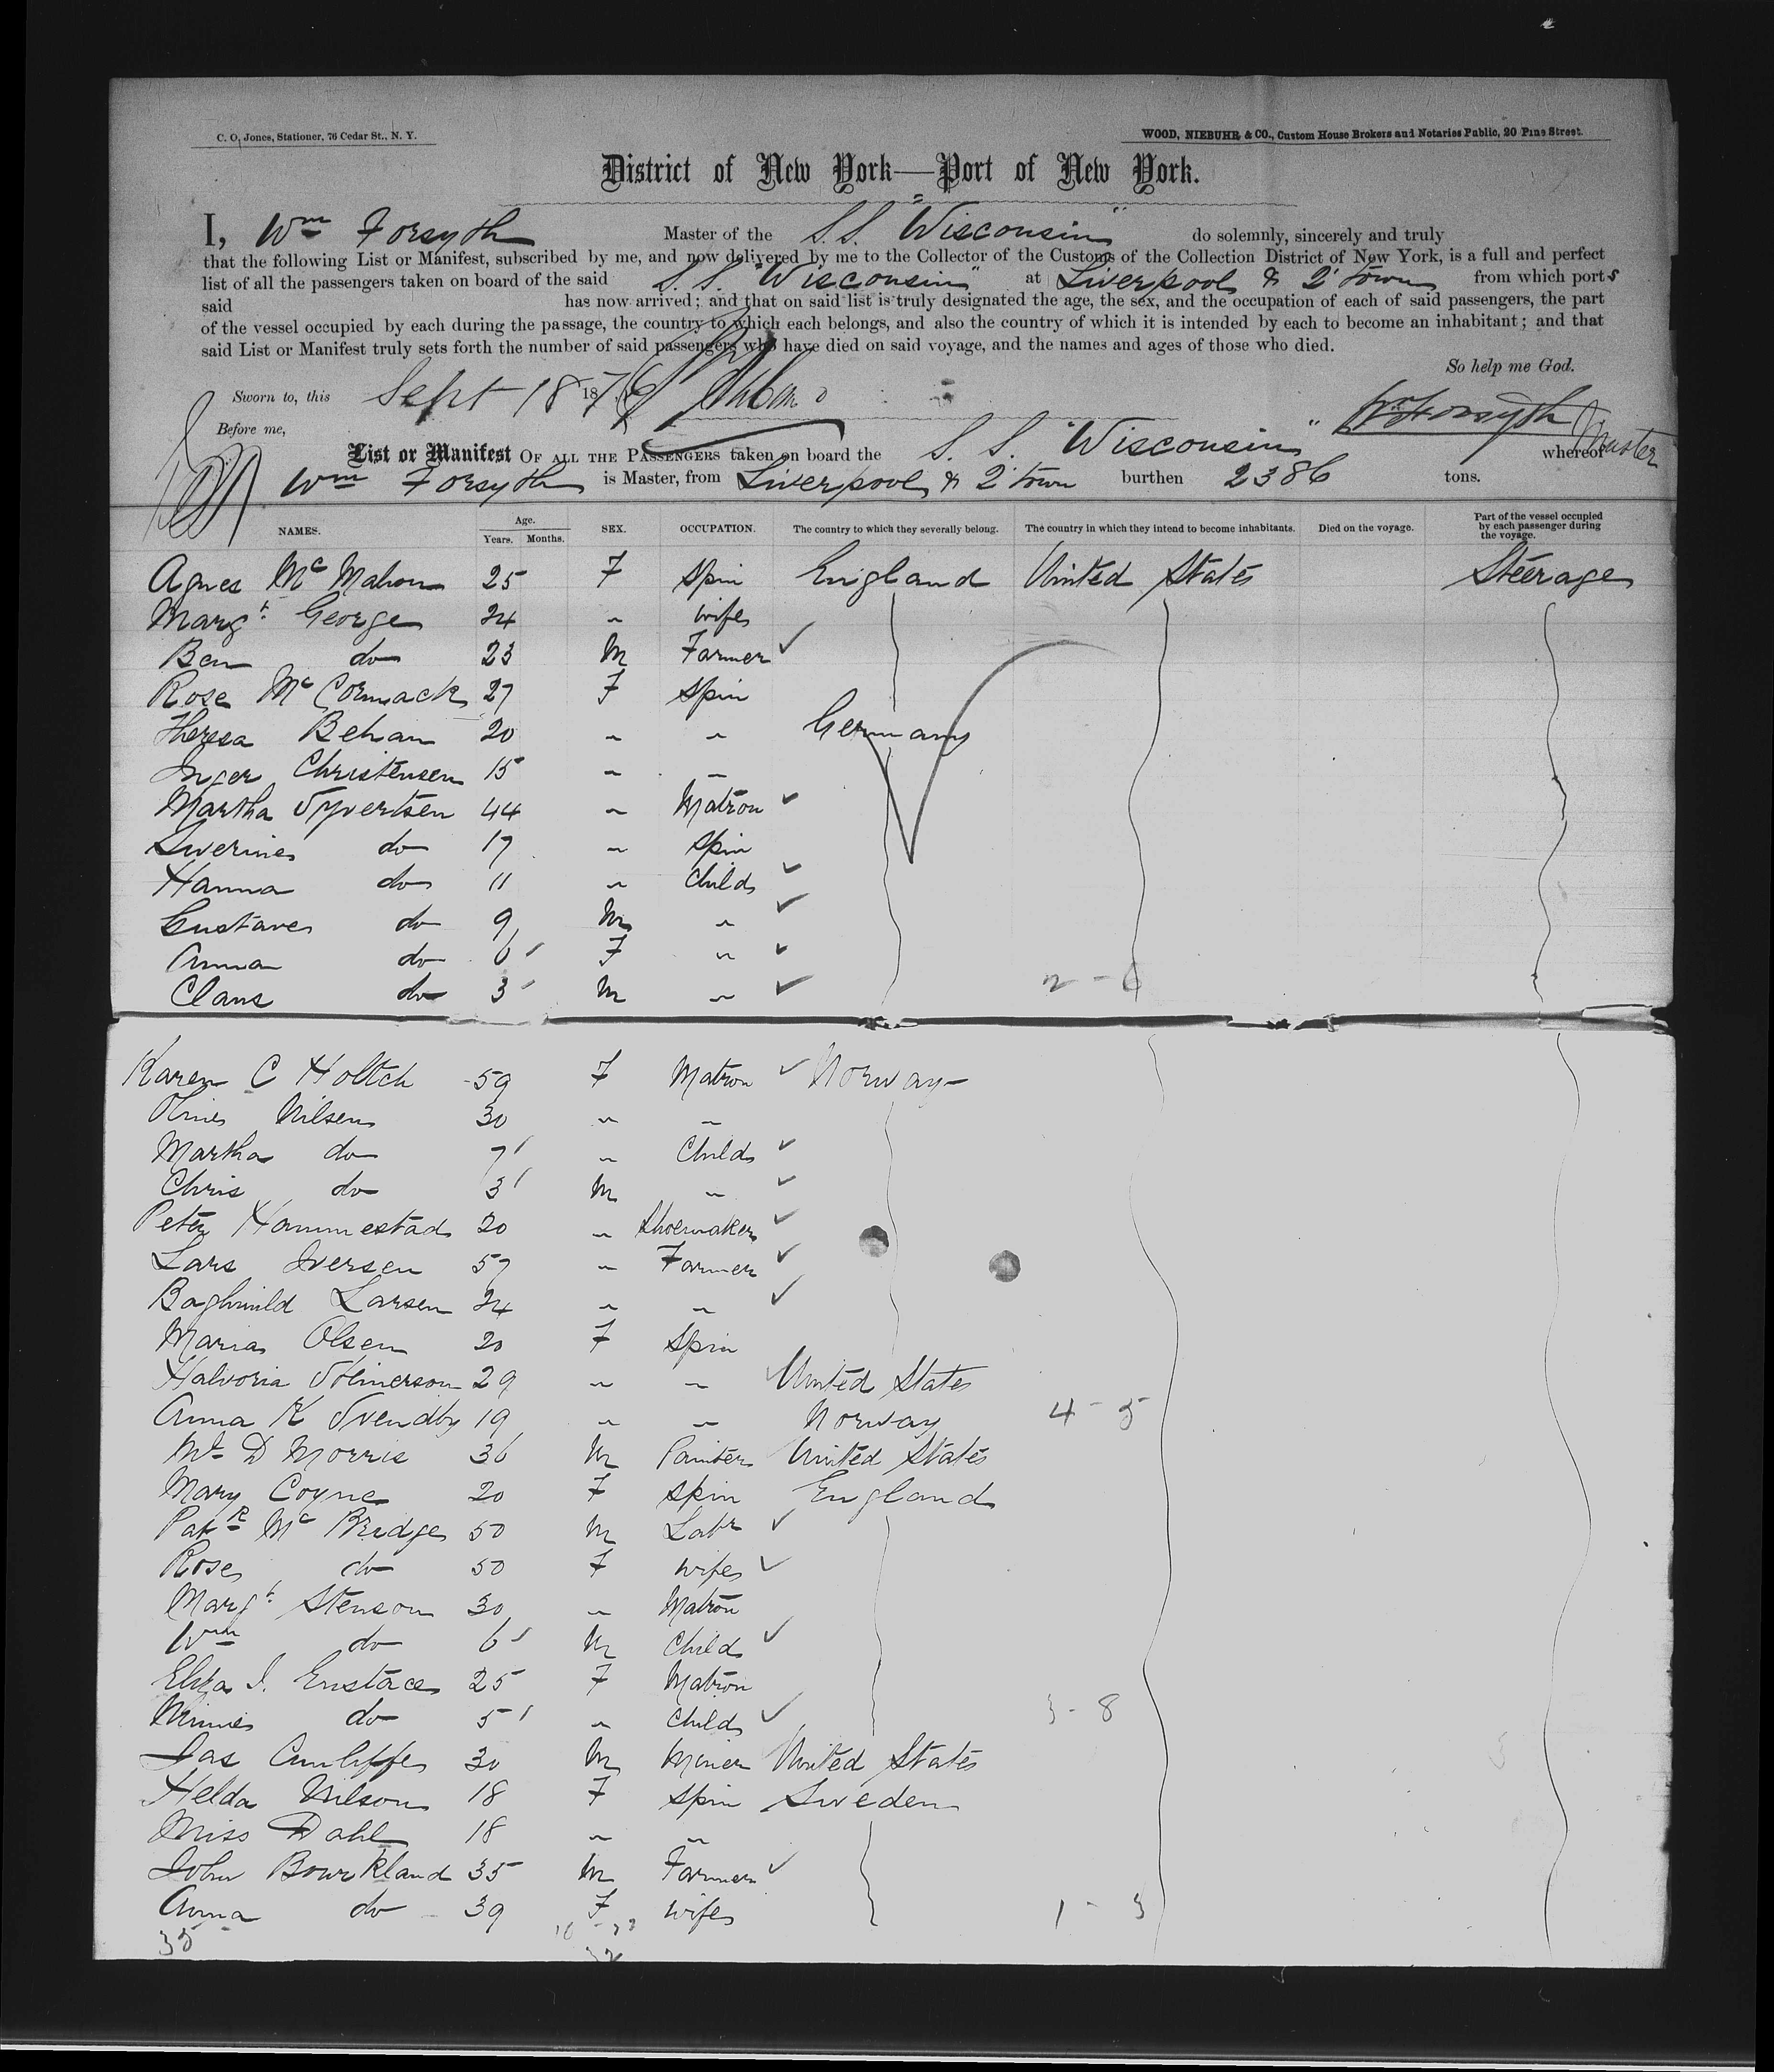 C. O. Jones, Stationer, 76 Cedar St., N. Y.
WOOD, NIEBUHR & CO., Custom House Brokers and Notaries Public, 20 Pine Street.
District of New York—Port of New York.
I, Wm Forsyth Master of the S.S. "Wisconsin" do solemnly, sincerely and truly
that the following List or Manifest, subscribed by me, and now delivered by me to the Collector of the Customs of the Collection District of New York, is a full and perfect
list of all the passengers taken on board of the said S.S. "Wisconsin" at Liverpool & Q'town from which ports
said has now arrived; and that on said list is truly designated the age, the sex, and the occupation of each of said passengers, the part
of the vessel occupied by each during the passage, the country to which each belongs, and also the country of which it is intended by each to become an inhabitant; and that
said List or Manifest truly sets forth the number of said passengers who have died on said voyage, and the names and ages of those who died.
So help me God.
Sworn to, this Sept 18 1876
Wm Forsyth
Before me,
List or Manifest OF ALL THE PASSENGERS taken on board the S. S. "Wisconsin" whereof Master
Wm Forsyth is Master, from Liverpool & Q'town burthen 2386 tons.
NAMES. Age. Years. Months. SEX. OCCUPATION. The country to which they severally belong. The country in which they intend to become inhabitants. Died on the voyage. Part of the vessel occupied by each passenger during the voyage.
Agnes McMahon 25 F Spin England United States Steerage
Margt. George 24 " wife
Ben do 23 M Farmer
Rose McCormack 27 F Spin
Theresa Behan 20 " " Germany
Inger Christensen 15 " "
Martha Syvertsen 44 " Matron
do 17 " Spin
Hanna do 11 " Child
Gustave do 9 M "
Anna do 6 F "
Claus do 3 M "
2 - 6
Karen C Holtch 59 F Matron Norway
Nilsen 30 " "
Martha do 7 " Child
Chris do 3 M "
Peter Hammestad 20 " Shoemaker
Lars Iversen 57 " Farmer
Larsen 24 " "
Maria Olsen 20 F Spin
Halvoria 29 " " United States
Anna K Svendby 19 " " Norway 4 - 5
D Morris 36 M Painter United States
Mary Coyne 20 F Spin England
Patk McBridge 50 M Labr
Rose do 50 F wife
Margt. Stenson 30 " Matron
Wm do 6 M Child
Eliza J. Eustace 25 F Matron
Minnie do 5 " Child 3 - 8
Jas Cunliffe 30 M Miner United States
Helda Nilson 18 F Spin Sweden
Miss Dahl 18 " "
John Bowrkland 35 M Farmer
Anna do 39 F wife 1 - 3
35